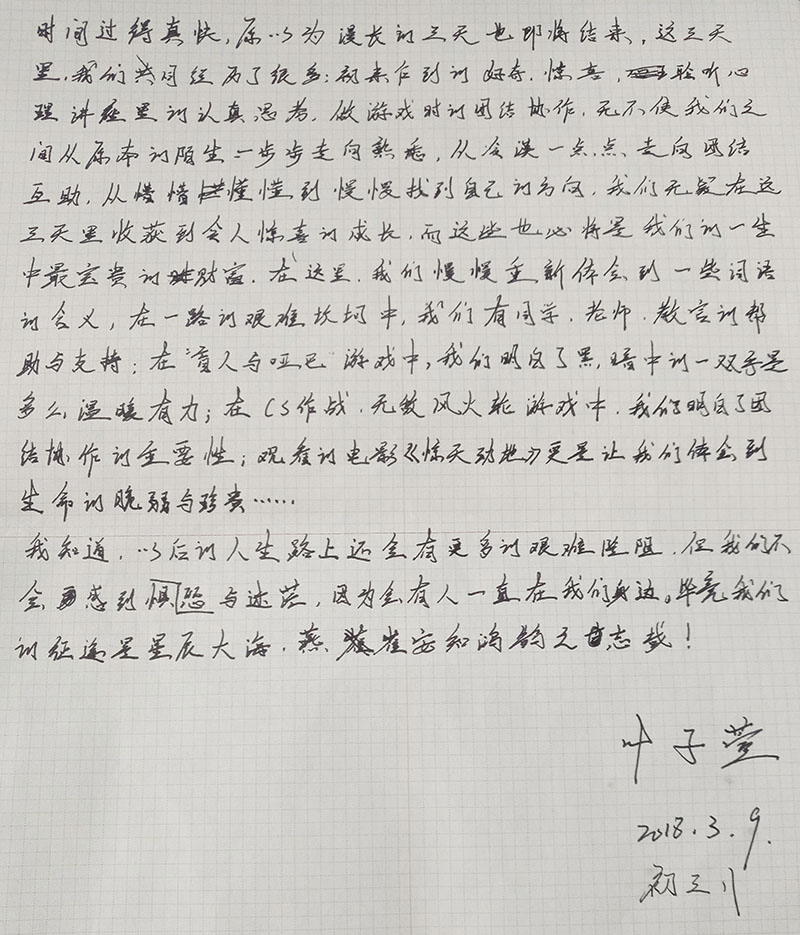 时间过得真快，原以为漫长的三天也即将结束，这三天
里，我们共同经历了很多：初来乍到的好奇、惊喜，聆听心
理讲座里的认真思考，做游戏时的团结协作，无不使我们之
间从原本的陌生一步步走向熟悉，从冷漠一点点走向团结
互助，从懵懵懂懂到慢慢找到自己的方向，我们无疑在这
三天里收获到令人惊喜的成长，而这些也必将是我们的一生
中最宝贵的财富。在这里，我们慢慢重新体会到一些词语
的含义，在一路的艰难坎坷中，我们有同学、老师、教官的帮
助与支持；在盲人与哑巴游戏中，我们明白了黑暗中的一双手是
多么温暖有力；在CS作战、无敌风火轮游戏中，我们明白了团
结协作的重要性；观看的电影《惊天动地》更是让我们体会到
生命的脆弱与珍贵……
我知道，以后的人生路上还会有更多的艰难险阻，但我们不
会感到惧恐与迷茫，因为会有人一直在我们身边。毕竟我们
的征途是星辰大海，燕雀安知鸿鹄之志哉！
叶子萱
2018.3.9.